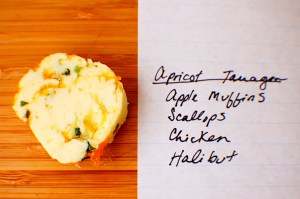 Apricot
Apple Muffins
Scallops
Chicken
Halibut